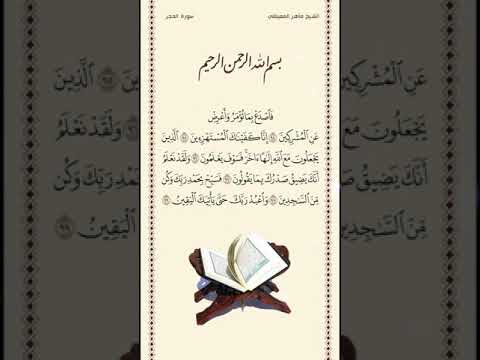 الشيخ ماهر المعيقلي
سورة الحجر
بسم الله الرحمن الرحيم
فَٱصْدَعْ بِمَا تُؤْمَرُ وَأَعْرِضْ
عَنِ ٱلْمُشْرِكِينَ ٩٤ إِنَّا كَفَيْنَٰكَ ٱلْمُسْتَهْزِءِينَ ٩٥ ٱلَّذِينَ
يَجْعَلُونَ مَعَ ٱللَّهِ إِلَٰهًا ءَاخَرَ فَسَوْفَ يَعْلَمُونَ ٩٦ وَلَقَدْ نَعْلَمُ
أَنَّكَ يَضِيقُ صَدْرُكَ بِمَا يَقُولُونَ ٩٧ فَسَبِّحْ بِحَمْدِ رَبِّكَ وَكُن
مِّنَ ٱلسَّٰجِدِينَ ٩٨ وَٱعْبُدْ رَبَّكَ حَتَّىٰ يَأْتِيَكَ ٱلْيَقِينُ ٩٩